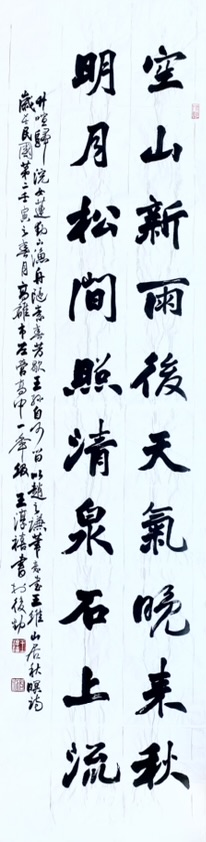 空山新雨後天氣晚来秋
明月松間照清泉石上流
竹喧歸浣女蓮動下漁舟随意春芳歇王孫自可留以趙之謙筆意書王維山居秋暝詩
歲在民國第二壬寅之春月高雄市左營高中一年級王淳禧書於後勁